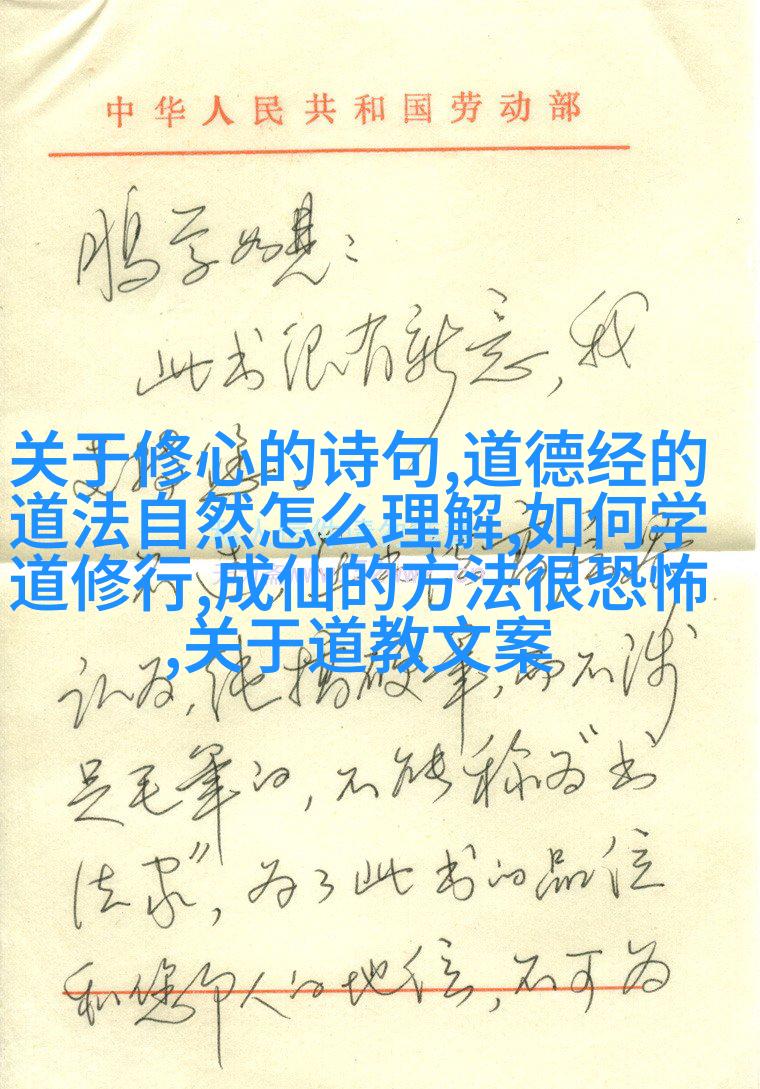 中华人民共和国劳动部
鹏学如晤：
此书很有新意，我
关于修心的诗句,道德经的
道法自然怎么理解,如何学
道修行,成仙的方法很恐怖
,关于道教文案
认为，纯搞硬笔，而不涉
足毛笔的，不能称为“书
法家”，为了此书的品位
和您印人的地位，不可为